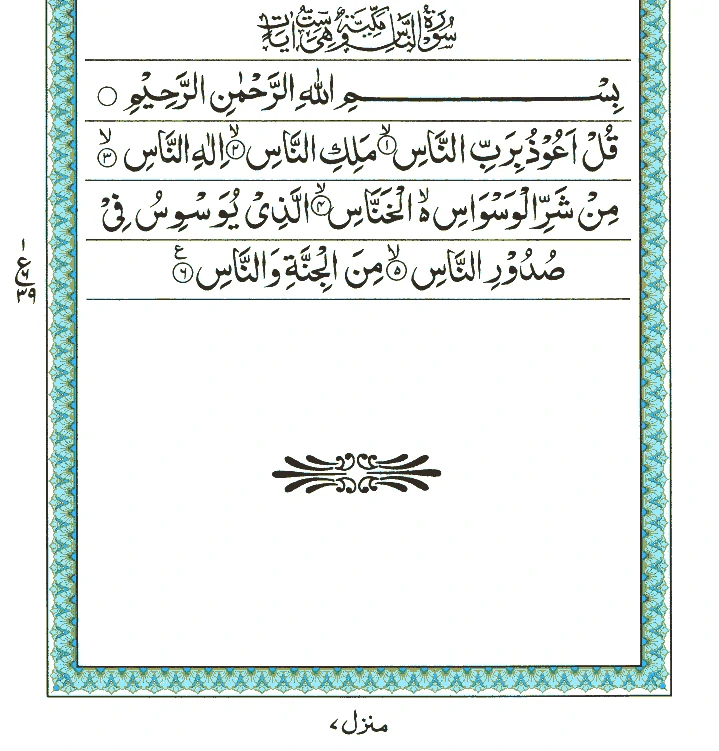 سُوْرَةُ النَّاسِ مَكِّيَّةٌ وَّهِیَ سِتُّ اٰیَاتٍ
بِسْمِ اللّٰهِ الرَّحْمٰنِ الرَّحِیْمِ ○
قُلْ اَعُوْذُ بِرَبِّ النَّاسِ ۙ﴿۱﴾ مَلِكِ النَّاسِ ۙ﴿۲﴾ اِلٰهِ النَّاسِ ۙ﴿۳﴾
مِنْ شَرِّ الْوَسْوَاسِ ۙ۬ الْخَنَّاسِ ۙ﴿۴﴾ الَّذِیْ یُوَسْوِسُ فِیْ
صُدُوْرِ النَّاسِ ۙ﴿۵﴾ مِنَ الْجِنَّةِ وَالنَّاسِ ﴿۶﴾ ع
۱
ع
۶
۳۹
منزل ۷